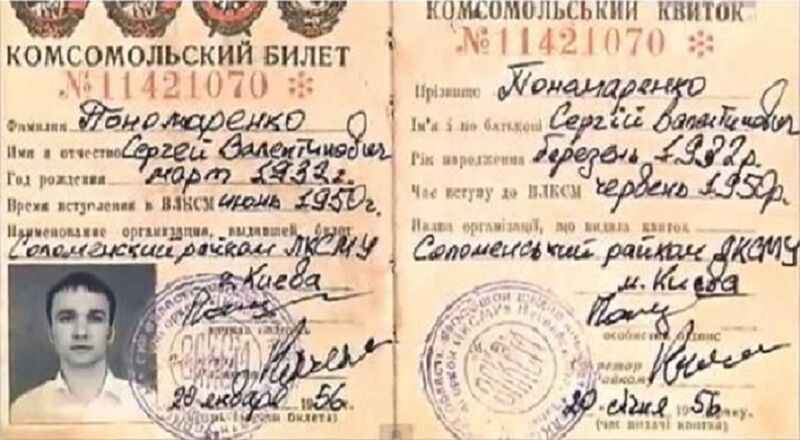 КОМСОМОЛЬСКИЙ БИЛЕТ
№ 11421070
Фамилия Пономаренко
Имя и отчество Сергей Валентинович
Год рождения март 1932 г.
Время вступления в ВЛКСМ июнь 1950 г.
Наименование организации, выдавшей билет
Соломенский райком ЛКСМУ
г. Киева
20 января 1956 г.
КОМСОМОЛЬСЬКИЙ КВИТОК
№ 11421070
Прізвище Пономаренко
Ім'я і по батькові Сергій Валентинович
Рік народження березень 1932 р.
Час вступу до ВЛКСМ червень 1950 р.
Назва організації, що видала квиток
Соломенський райком ЛКСМУ
м. Києва
особистий підпис
райкому
20 січня 1956 р.
(час видачі квитка)